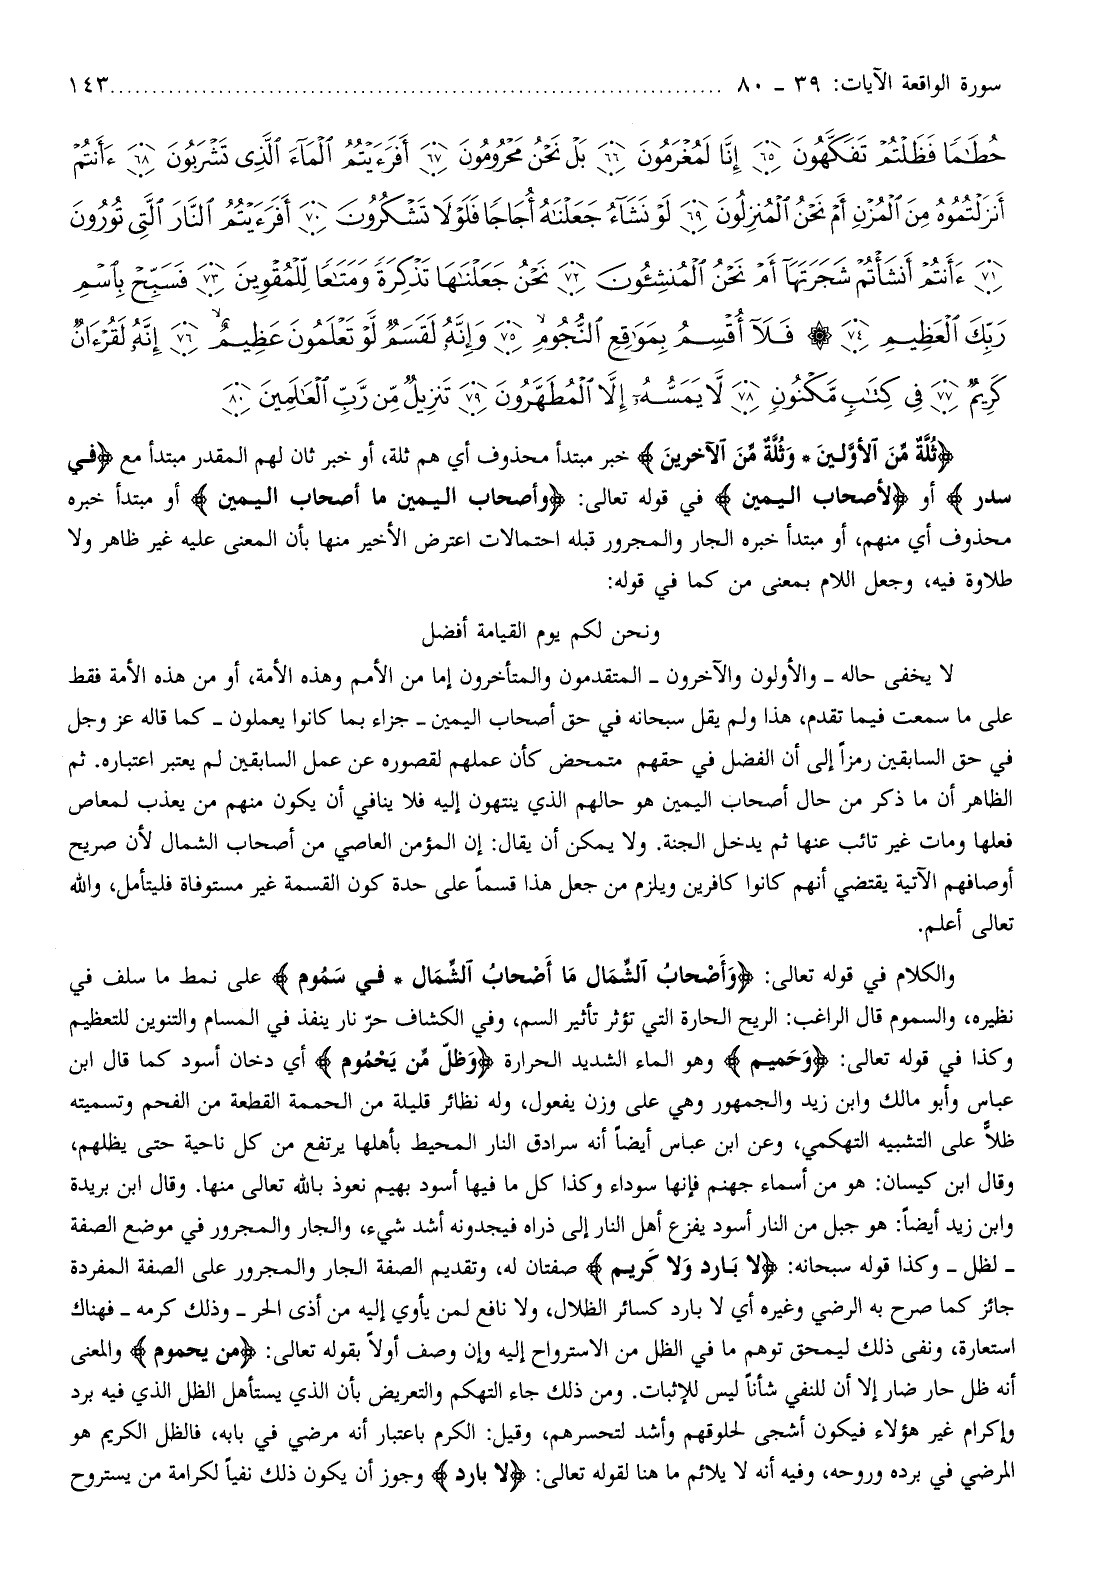 سورة الواقعة الآيات: ٣٩ ـ ٨٠ ........................................................................ ١٤٣
حُطَـٰمًا فَظَلْتُمْ تَفَكَّهُونَ ﴿٦٥﴾ إِنَّا لَمُغْرَمُونَ ﴿٦٦﴾ بَلْ نَحْنُ مَحْرُومُونَ ﴿٦٧﴾ أَفَرَءَيْتُمُ ٱلْمَآءَ ٱلَّذِى تَشْرَبُونَ ﴿٦٨﴾ ءَأَنتُمْ
أَنزَلْتُمُوهُ مِنَ ٱلْمُزْنِ أَمْ نَحْنُ ٱلْمُنزِلُونَ ﴿٦٩﴾ لَوْ نَشَآءُ جَعَلْنَـٰهُ أُجَاجًا فَلَوْلَا تَشْكُرُونَ ﴿٧٠﴾ أَفَرَءَيْتُمُ ٱلنَّارَ ٱلَّتِى تُورُونَ
﴿٧١﴾ ءَأَنتُمْ أَنشَأْتُمْ شَجَرَتَهَآ أَمْ نَحْنُ ٱلْمُنشِـُٔونَ ﴿٧٢﴾ نَحْنُ جَعَلْنَـٰهَا تَذْكِرَةً وَمَتَـٰعًا لِّلْمُقْوِينَ ﴿٧٣﴾ فَسَبِّحْ بِٱسْمِ
رَبِّكَ ٱلْعَظِيمِ ﴿٧٤﴾ ۞ فَلَآ أُقْسِمُ بِمَوَٰقِعِ ٱلنُّجُومِ ﴿٧٥﴾ وَإِنَّهُۥ لَقَسَمٌ لَّوْ تَعْلَمُونَ عَظِيمٌ ﴿٧٦﴾ إِنَّهُۥ لَقُرْءَانٌ
كَرِيمٌ ﴿٧٧﴾ فِى كِتَـٰبٍ مَّكْنُونٍ ﴿٧٨﴾ لَّا يَمَسُّهُۥٓ إِلَّا ٱلْمُطَهَّرُونَ ﴿٧٩﴾ تَنزِيلٌ مِّن رَّبِّ ٱلْعَـٰلَمِينَ ﴿٨٠﴾
﴿ثُلَّةٌ مِّنَ ٱلأَوَّلينَ * وَثُلَّةٌ مِّنَ ٱلآخرينَ﴾ خبر مبتدأ محذوف أي هم ثلة، أو خبر ثان لهم المقدر مبتدأ مع ﴿في
سدر﴾ أو ﴿لأصحاب اليمين﴾ في قوله تعالى: ﴿وأصحاب اليمين ما أصحاب اليمين﴾ أو مبتدأ خبره
محذوف أي منهم، أو مبتدأ خبره الجار والمجرور قبله احتمالات اعترض الأخير منها بأن المعنى عليه غير ظاهر ولا
طلاوة فيه، وجعل اللام بمعنى من كما في قوله:
ونحن لكم يوم القيامة أفضل
لا يخفى حاله ـ والأولون والآخرون ـ المتقدمون والمتأخرون إما من الأمم وهذه الأمة، أو من هذه الأمة فقط
على ما سمعت فيما تقدم، هذا ولم يقل سبحانه في حق أصحاب اليمين ـ جزاء بما كانوا يعملون ـ كما قاله عز وجل
في حق السابقين رمزاً إلى أن الفضل في حقهم متمحض كأن عملهم لقصوره عن عمل السابقين لم يعتبر اعتباره. ثم
الظاهر أن ما ذكر من حال أصحاب اليمين هو حالهم الذي ينتهون إليه فلا ينافي أن يكون منهم من يعذب لمعاص
فعلها ومات غير تائب عنها ثم يدخل الجنة. ولا يمكن أن يقال: إن المؤمن العاصي من أصحاب الشمال لأن صريح
أوصافهم الآتية يقتضي أنهم كانوا كافرين ويلزم من جعل هذا قسماً على حدة كون القسمة غير مستوفاة فليتأمل، والله
تعالى أعلم.
والكلام في قوله تعالى: ﴿وَأَصْحابُ ٱلشِّمَال مَا أَصْحابُ ٱلشِّمَال * في سَمُوم﴾ على نمط ما سلف في
نظيره، والسموم قال الراغب: الريح الحارة التي تؤثر تأثير السم، وفي الكشاف حرّ نار ينفذ في المسام والتنوين للتعظيم
وكذا في قوله تعالى: ﴿وَحَميم﴾ وهو الماء الشديد الحرارة ﴿وَظلّ مِّن يَحْمُوم﴾ أي دخان أسود كما قال ابن
عباس وأبو مالك وابن زيد والجمهور وهي على وزن يفعول، وله نظائر قليلة من الحممة القطعة من الفحم وتسميته
ظلاًّ على التشبيه التهكمي، وعن ابن عباس أيضاً أنه سرادق النار المحيط بأهلها يرتفع من كل ناحية حتى يظلهم،
وقال ابن كيسان: هو من أسماء جهنم فإنها سوداء وكذا كل ما فيها أسود بهيم نعوذ بالله تعالى منها. وقال ابن بريدة
وابن زيد أيضاً: هو جبل من النار أسود يفزع أهل النار إلى ذراه فيجدونه أشد شيء، والجار والمجرور في موضع الصفة
ـ لظل ـ وكذا قوله سبحانه: ﴿لا بَارد وَلا كَريم﴾ صفتان له، وتقديم الصفة الجار والمجرور على الصفة المفردة
جائز كما صرح به الرضي وغيره أي لا بارد كسائر الظلال، ولا نافع لمن يأوي إليه من أذى الحر ـ وذلك كرمه ـ فهناك
استعارة، ونفى ذلك ليمحق توهم ما في الظل من الاسترواح إليه وإن وصف أولاً بقوله تعالى: ﴿من يحموم﴾ والمعنى
أنه ظل حار ضار إلا أن للنفي شأناً ليس للإثبات. ومن ذلك جاء التهكم والتعريض بأن الذي يستأهل الظل الذي فيه برد
وإكرام غير هؤلاء فيكون أشجى لحلوقهم وأشد لتحسرهم، وقيل: الكرم باعتبار أنه مرضي في بابه، فالظل الكريم هو
المرضي في برده وروحه، وفيه أنه لا يلائم ما هنا لقوله تعالى: ﴿لا بارد﴾ وجوز أن يكون ذلك نفياً لكرامة من يستروح